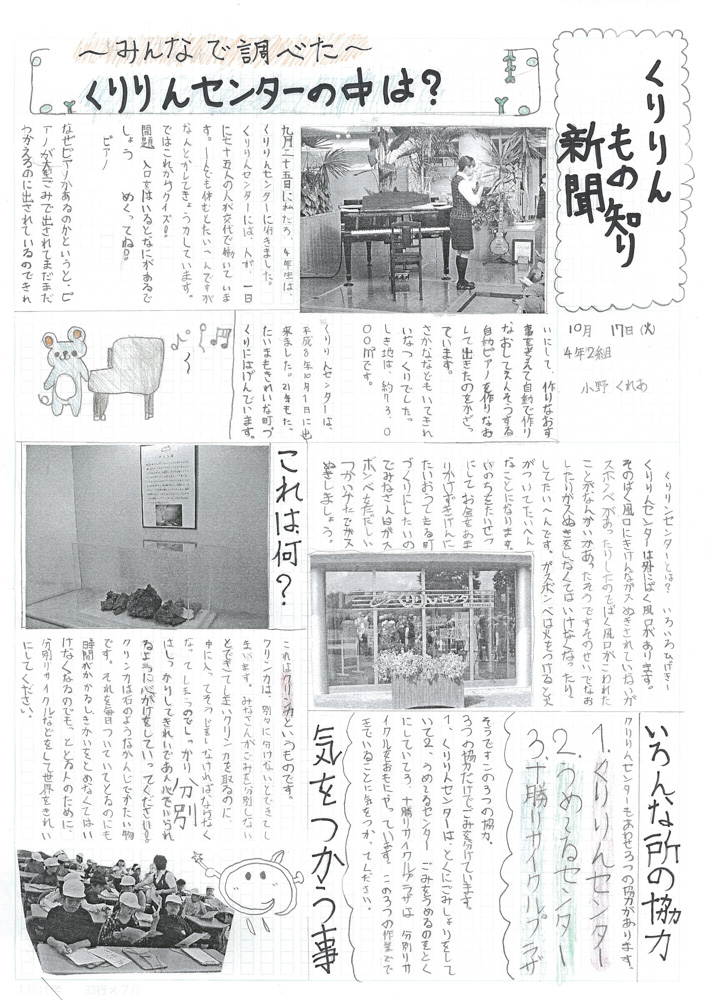 くりりん
もの知り
新聞
10月 17日(火)
4年2組
小野 くれあ
〜みんなで調べた〜
くりりんセンターの中は?
九月二十五日に私たち、4年生は、
くりりんセンターに行きました。
くりりんセンターには、人が、一日
に七十五人の人が交代で働いていま
す。一人でも休むとたいへんですが
なんとかしてきょう力しています。
ではこれからクイズ!
問題 入口をはいるとなにがあるで
しょう めくってね!
ピアノ
なぜピアノがあるのかというと、ピ
アノが大型ごみで出されてまだまだ
つかえるのに出されているのできれ
いにして、作りなおす
事を考えて自動で作り
なおしてえんそうする
自動ピアノを作りなお
して出きたのをかざっ
ています。
さかななどもいてきれ
いなつくりでした。
しき地は、約730
00㎡です。
くりりんセンターは、
平成8年10月1日に出
来ました。21年もた。
たいまもきれいな町づ
くりにはげんでいます。
くりりンセンターとは? いろいろひげき〜
くりりんセンターは外にばく風口があります。
そのばく風口にきけんながスぬぎされていないが
スボンベがあったりしたのでばく風口がこわれた
ことがなんかいかあったそうですそのせいでなお
したりがスぬきをしなくてはいけなくなったり、
してたいへんです。ガスボンベは火をつけると火
がついてたいへん
なことになります。
いのちをたいせつ
にしてお金をあま
りかけずきけんに
たいおうできる町
づくりにしたいの
でみなさんはがス
ボンベをただしい
つかいかたでがス
ぬきしましょう。
これは何?
これはクリンカというものです。
クリンカは、別々に分けないとできてし
まいます。みなさんがごみを分別しない
とできてしまいクリンカを取るのに、
中に入ってそうじをしなければならなく
なってしまうのでしっかり分別
はしっかりしてきれいであん心でいられ
るように心がけをしていってください。
クリンカは石のようなかんじでかたい物
です。それを毎日ついていてとるのにも
時間がかかるしきかいをとめなくてはい
けなくなるのでもっととる人のために、
分別リサイクルなどをして世界をきれい
にしてください。
いろんな所の協力
クリりんセンターもあわせ3つの協力があります。
1.くりりんセンター
2.うめたてるセンター
3.十勝リサイクルプラザ
そうですこの3つの協力。
3つの協力だけでごみを分けています。
1、くりりんセンターはとくにごみしょりをして
いて2、うめてるセンター ごみをうめるのをとく
にしていて3、十勝リサイクルプラザは 分別リサ
イクルをおもにやっています。この3つの作業でで
きていることに気をつかってください。
気をつかう事